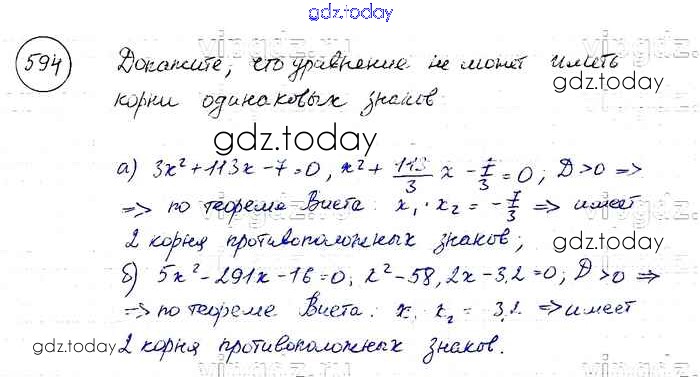 gdz.today
594 Докажите, что уравнение не может иметь
корни одинаковых знаков
gdz.today
gdz.today
а) 3x² + 113x - 7 = 0, x² + 113/3 x - 7/3 = 0; D > 0 =>
=> по теореме Виета: x₁ · x₂ = - 7/3 => имеет
2 корня противоположных знаков;
gdz.today
б) 5x² - 291x - 16 = 0; x² - 58,2x - 3,2 = 0; D > 0 =>
=> по теореме Виета: x₁ x₂ = 3,2 => имеет
2 корня противоположных знаков.
gdz.today
gdz.today